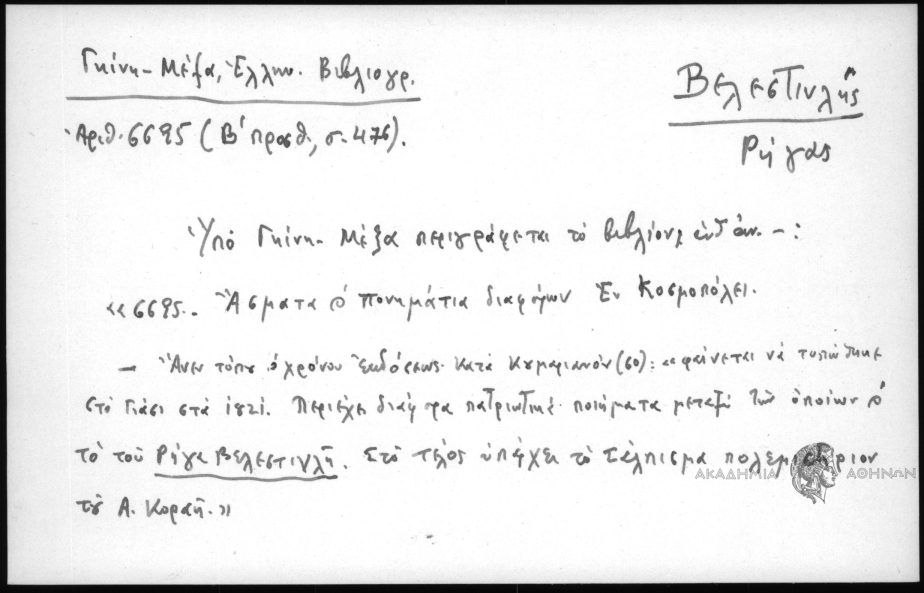 Γκίνη - Μέξα, Ἑλλην. Βιβλιογρ.
Βελεστινλῆς
Ἀριθ. 6695 (Β' προσθ., σ. 476).
Ρήγας
Ὑπὸ Γκίνη - Μέξα περιγράφεται τὸ βιβλίον,
«6695.. Ἄσματα καὶ πονημάτια διαφόρων Ἐν Κοσμοπόλει.
— Ἄνευ τόπου καὶ χρόνου ἐκδόσεως. Κατὰ Κουμαριανόν (60): «φαίνεται νὰ τυπώθηκε
στὸ Γιάσι στὰ 1821. Περιέχει διάφορα πατριωτικὰ ποιήματα μεταξὺ τῶν ὁποίων καὶ
τὸ τοῦ Ρήγα Βελεστινλῆ. Στὸ τέλος ὑπάρχει τὸ Σάλπισμα πολεμιστήριον
τοῦ Α. Κοραῆ.»
ΑΚΑΔΗΜΙΑ ΑΘΗΝΩΝ